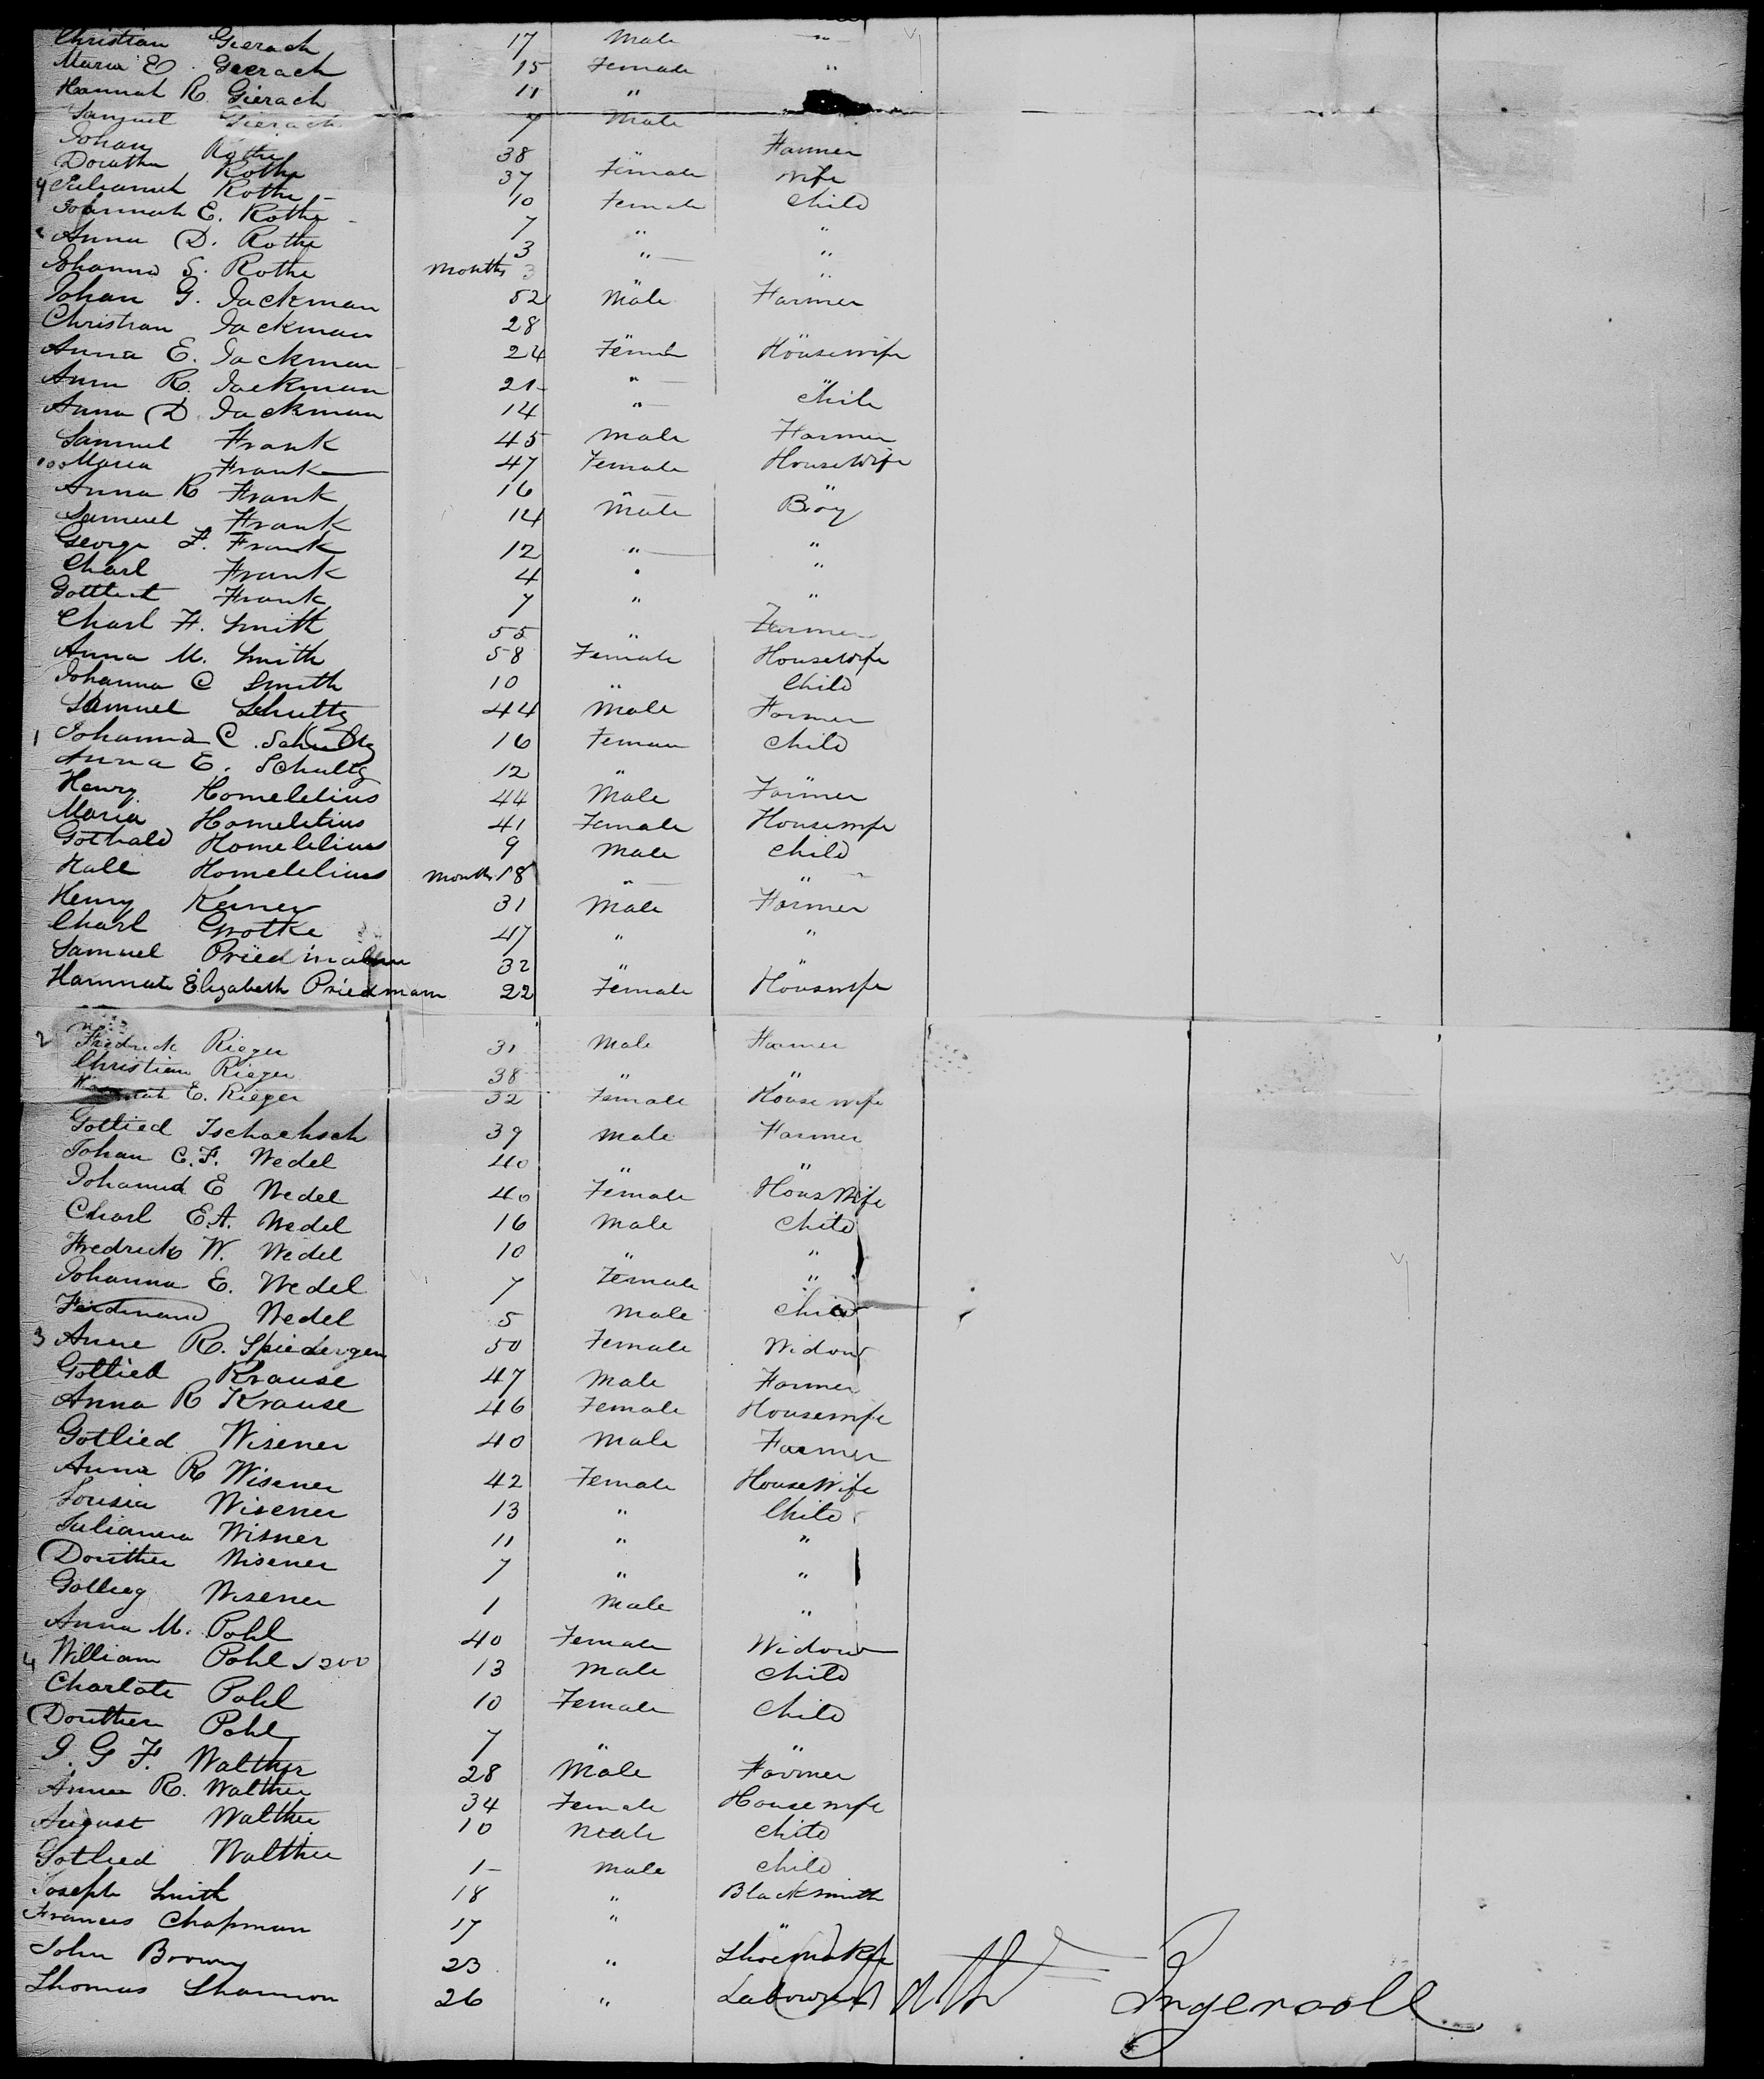 Christian Gierach 17 Male "
Maria E. Gierach 15 Female "
Hannah R. Gierach 11 "
Samuel Gierach 7 Male
Johan Rothe 38 Farmer
Dorothea Rothe 37 Female Wife
9 Julianah Rothe 10 Female Child
Johannah E. Rothe 7 " "
Anna D. Rothe 3 " "
Johanna S. Rothe Months 3 "
Johan G. Jackman 52 Male Farmer
Christian Jackman 28
Anna E. Jackman 24 Female Housewife
Anna R. Jackman 21 "
Anna D. Jackman 14 " Chile
Samuel Frank 45 Male Farmer
100 Maria Frank 47 Female HouseWife
Anna R Frank 16 " "
Samuel Frank 14 Male Boy
George F. Frank 12 " "
Charl Frank 4 " "
Gottlieb Frank 7 " "
Charl F. Smith 55 " Farmer
Anna M. Smith 58 Female Housewife
Johanna C Smith 10 " Child
Samuel Schultz 44 Male Farmer
1 Johanna C. Schultz 16 Female Child
Anna E. Schultz 12 "
Henry Homelelius 44 Male Farmer
Maria Homelelius 41 Female Housewife
Gothald Homelelius 9 Male Child
Hall Homelelius Months 18 " "
Henry Kerner 31 Male Farmer
Charl Grotke 47 " "
Samuel Priedmahn 32 " "
Hannah Elizabeth Priedmam 22 Female Housewife
2 Fredrick Rieger 31 Male Farmer
Christian Rieger 38 " "
E. Rieger 32 Female House wife
Gotlied Tschachsch 39 Male Farmer
Johan C. F. Wedel 40 " "
Johanna E Wedel 40 Female HousWife
Charl E.A. Wedel 16 Male Child
Fredrick W. Wedel 10 " "
Johanna E. Wedel 7 Female "
Ferdinand Wedel 5 Male Child
3 Anne R. Speidergen 50 Female Widow
Gotlied Krause 47 Male Farmer
Anna R Krause 46 Female Housewife
Gotlied Wisener 40 Male Farmer
Anna R Wisener 42 Female HouseWife
Lousia Wisener 13 " Child
Julianna Wisner 11 " "
Dorithea Wisener 7 " "
Wisener 1 Male "
Anna M. Pohl 40 Female Widow
4 William Pohl 13 Male Child
Charlote Pohl 10 Female Child
Dorithea Pohl 7 " "
J. G F. Walther 28 Male Farmer
Anna R. Walther 34 Female Housewife
August Walther 10 Male Child
Gotlied Walther 1 Male Child
Joseph Smith 18 " Blacksmith
Frances Chapman 17 " "
John Brown 23 " Shoemaker
Thomas Shannon 26 " Labourer
Ingersoll